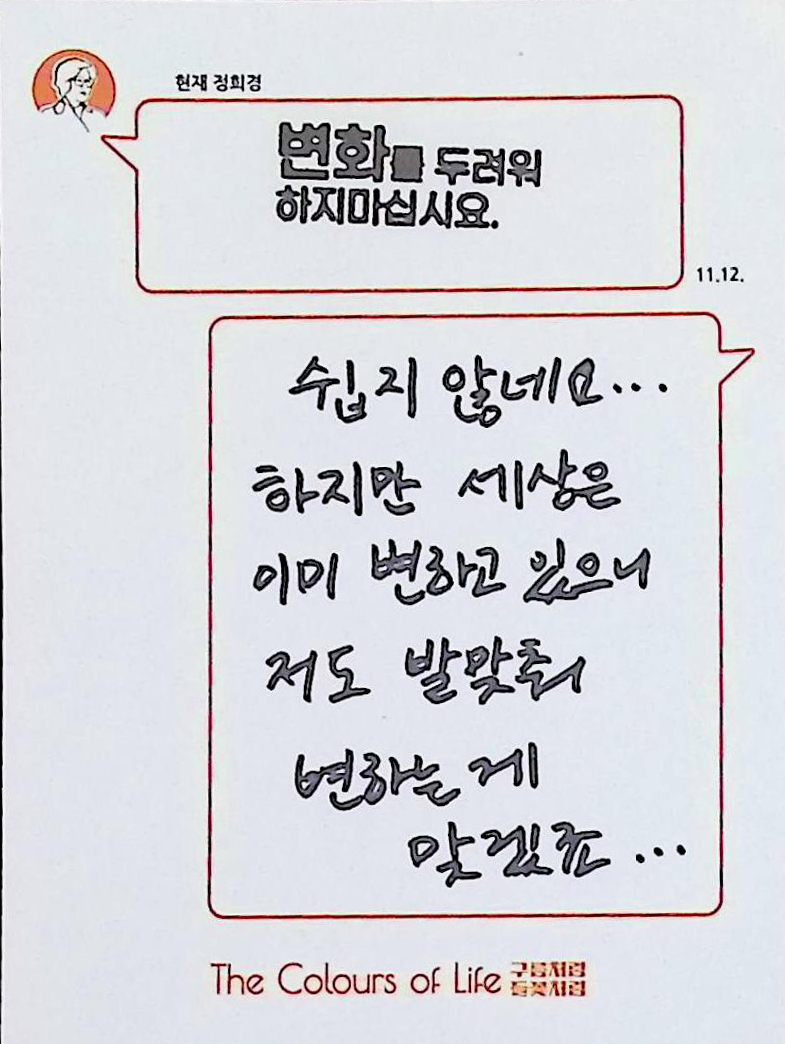 현재 정희경
변화를 두려워
하지마십시요.
11.12.
쉽지 않네요...
하지만 세상은
이미 변하고 있으니
저도 발맞춰
변하는 게
맞겠죠...
The Colours of Life 구름처럼
들꽃처럼